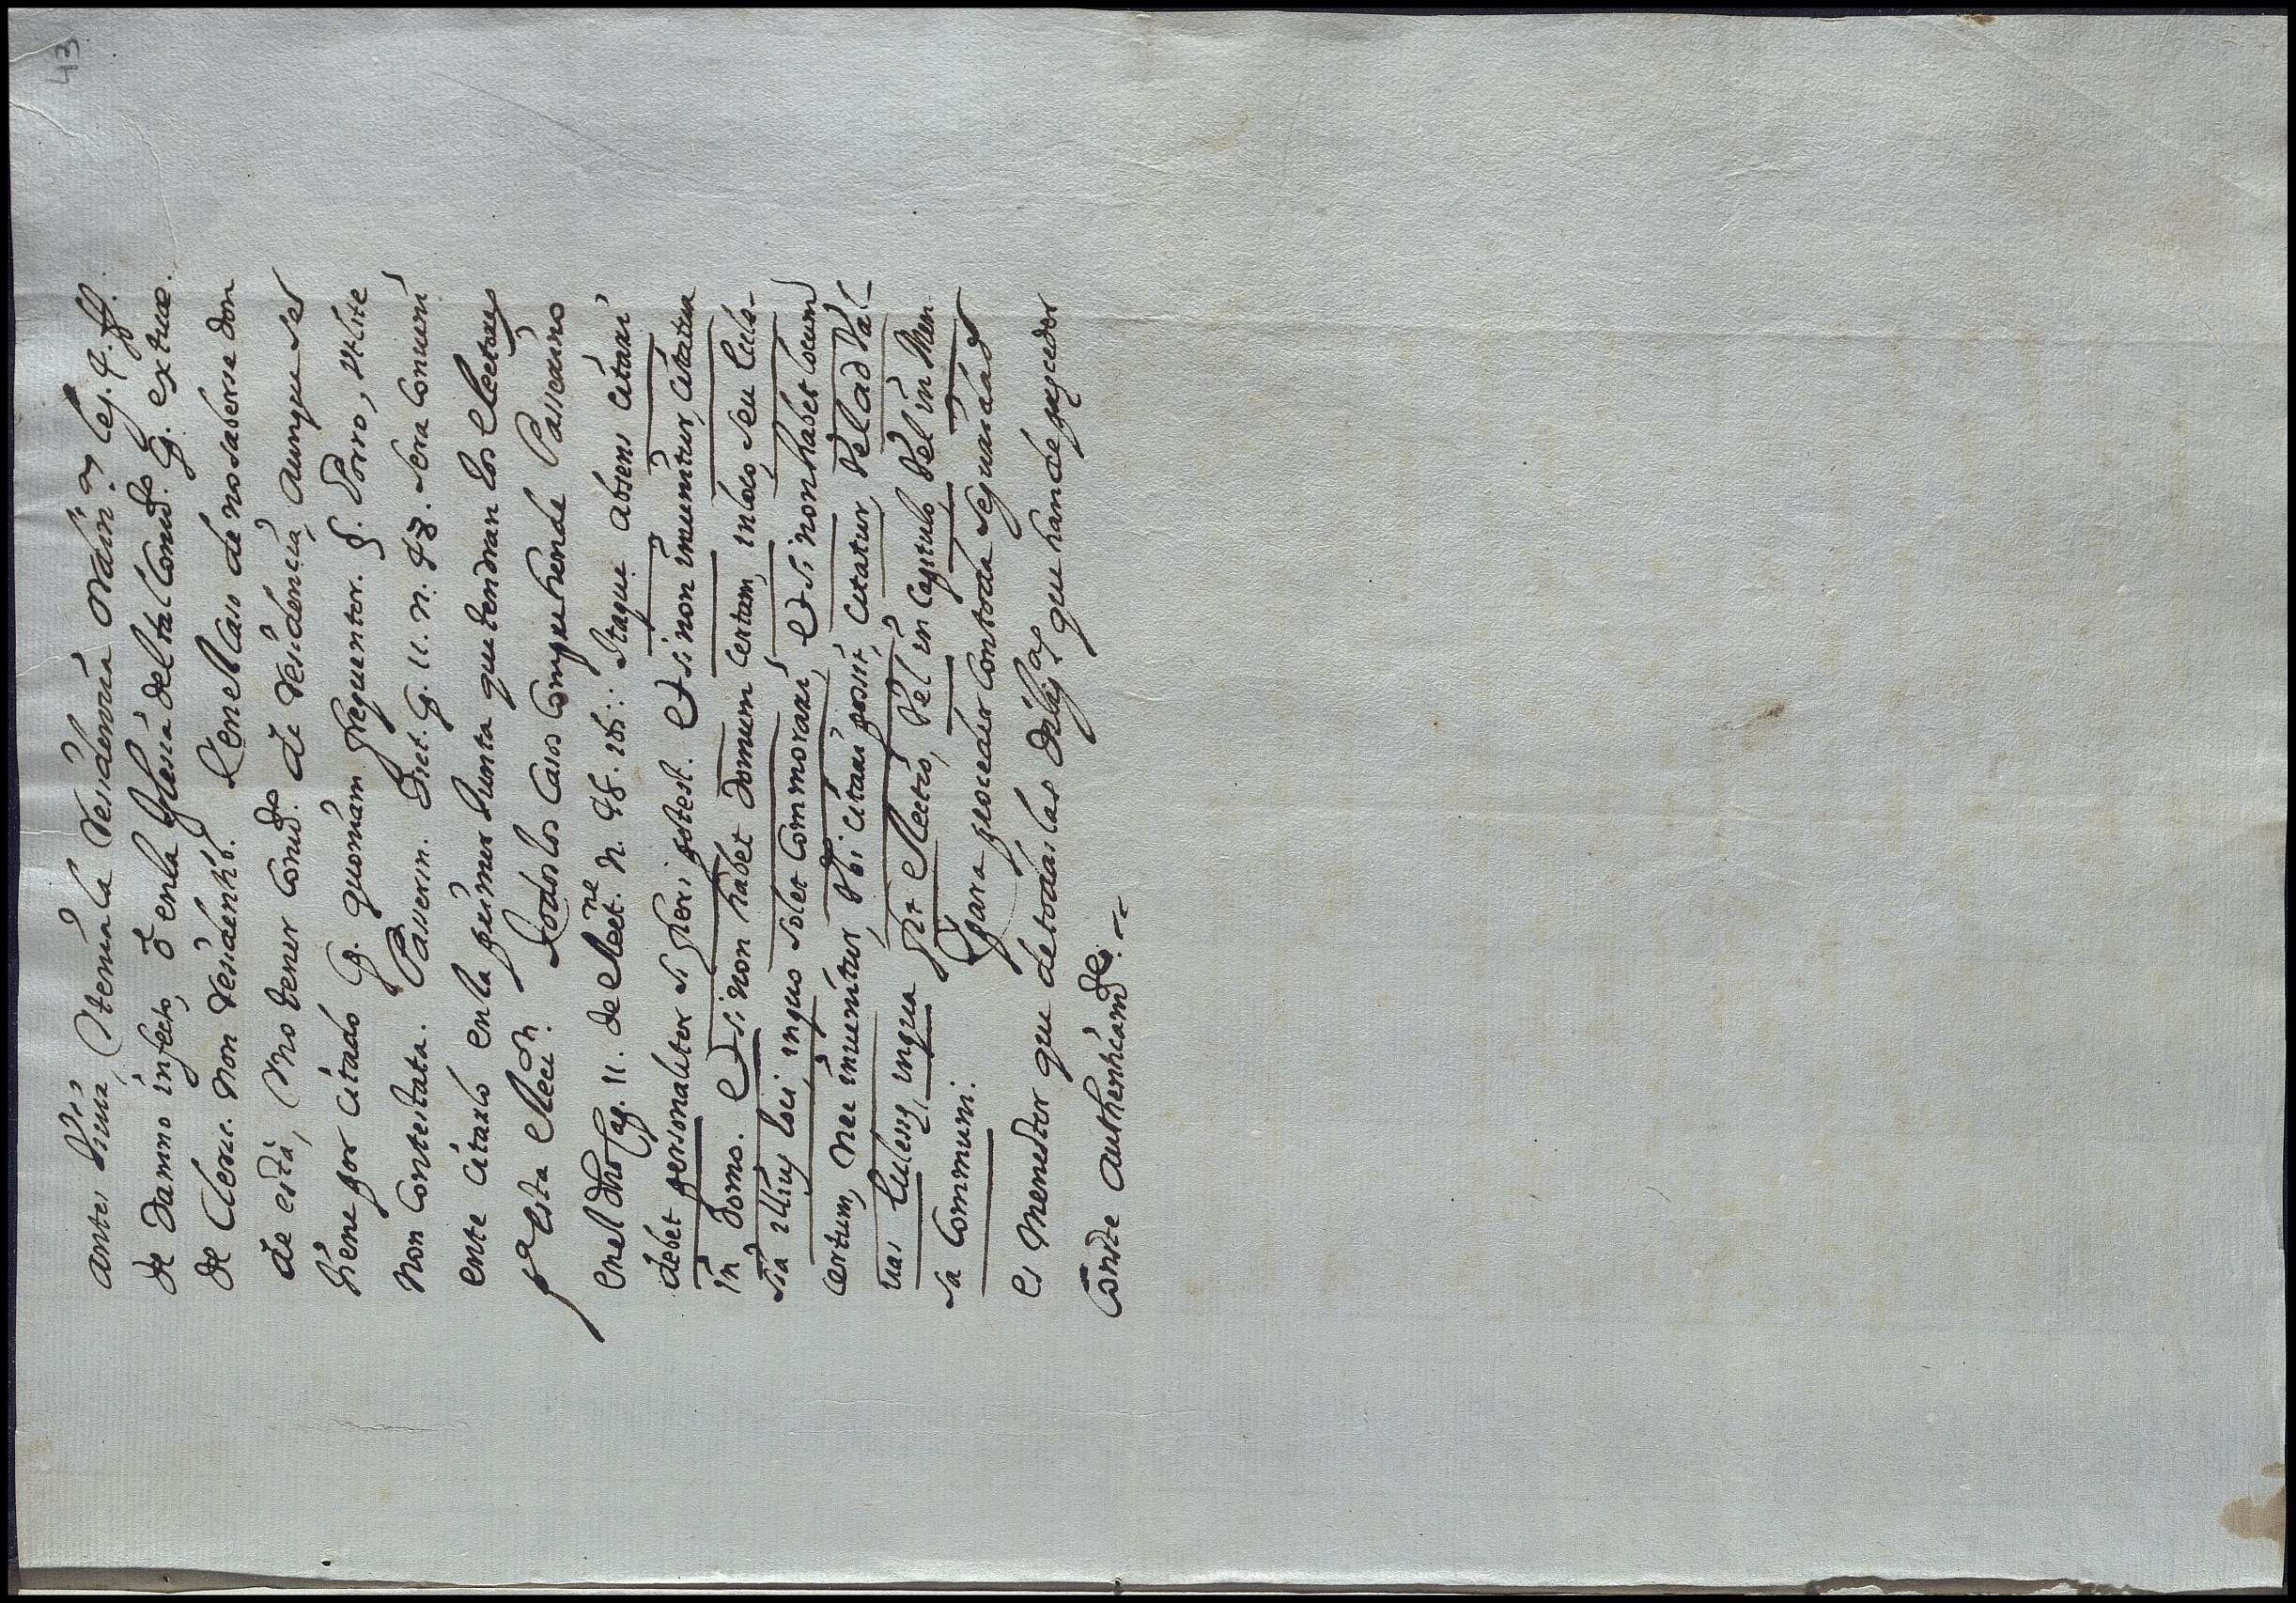 43
antes viuia, ó tenia la residencia ordin.ª ley. 4. ff.
de damno infecto, ó en la Iglesia del tal Conu.do Cap. ex tuae.
de Cleric. non residentib. Y en el caso de no saberse don
de està, ó no tener Conu.do de residencia, aunque se
viene por citado Cap. quoniam frequenter. §. Porro, vt lite
non Contestata. Passerin. Dict. Cap. 11. n. 48. sera Conueni
ente citarlo en la primer Junta que tendran los Electores
pª esta Elecc.n. Todos los casos Comprehende Passerino
en el dho Cap. 11. de Elect.ne n. 48. ibi: Itaque absens citari
debet personaliter si fieri potest. Et si non inuenitur, citatur
in domo. Et si non habet domum certam, in loco, seu Eccle-
sia illius loci in quo solet Commorari, et si non habet locum
certum, nec inuenitur, vbi citari possit, citatur, vel ad val-
uas Ecclesiæ, in qua fit electio, vel in Capitulo, vel in men
sa Communi. Y para proceder con toda seguridad
es menester que de todas las dilig.as que han de preceder
Conste authenticam.te